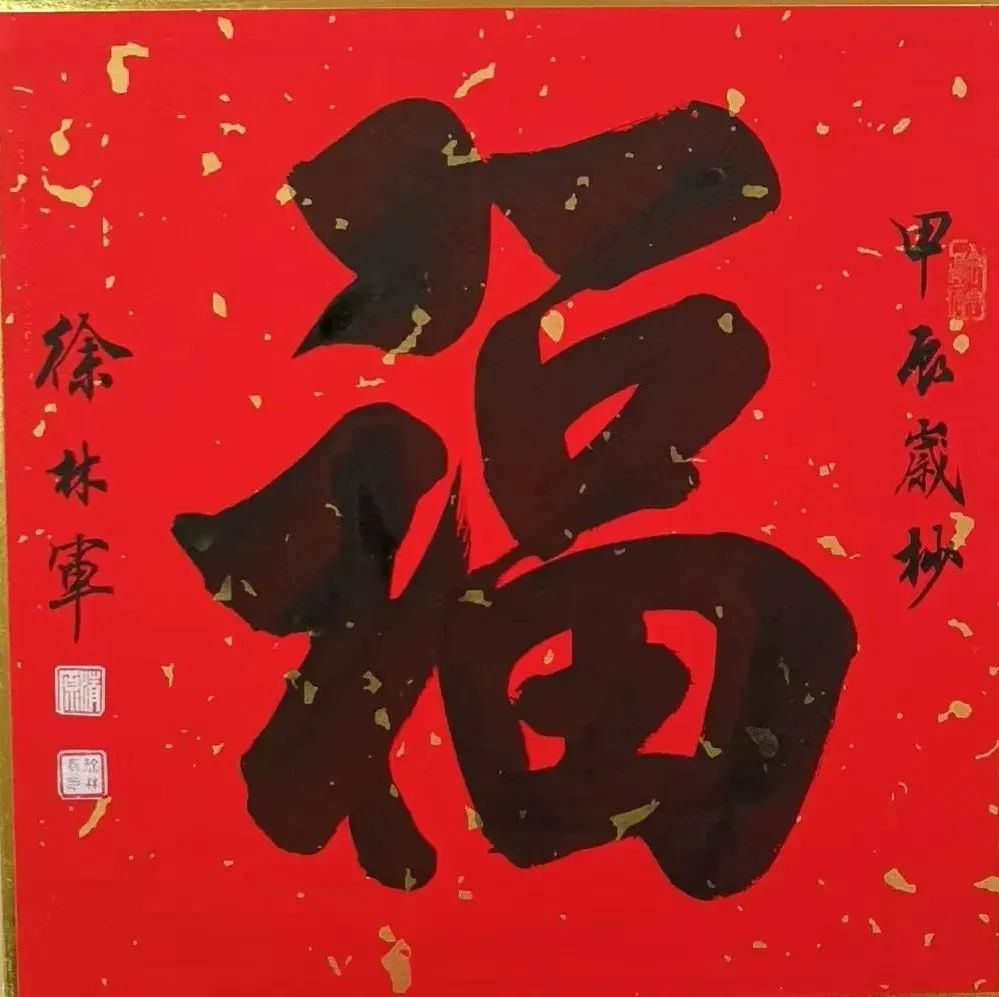 甲辰歲杪
福
徐林軍